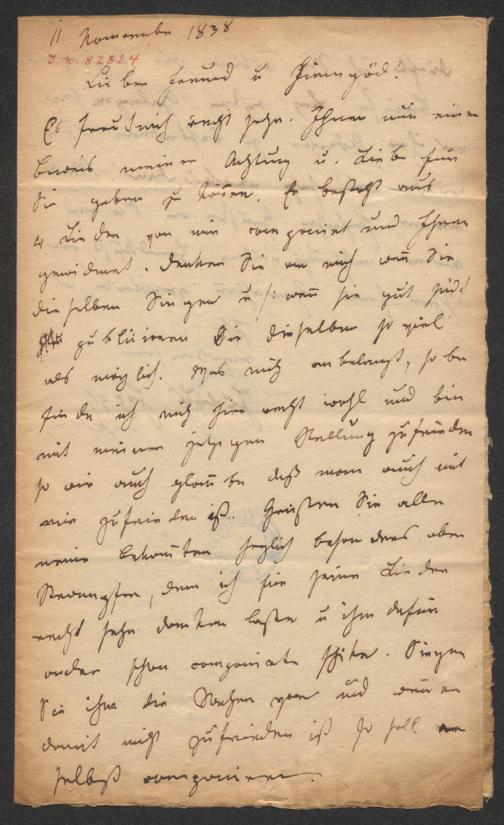 11 November 1838
I.N. 82824
Lieber Freund u
Es freut mich recht sehr. Ihnen nun einen
Beweis meiner Achtung u. Liebe für
Sie geben zu können. Er besteht aus
4 Lieder von mir componiert und Ihnen
gewidmet. Denken Sie an mich wenn Sie
dieselben Singen u /: wenn sie gut sind
publiciren Sie dieselben so viel
als möglich. Was mich anbelangt, so be
finde ich mich hier recht wohl und bin
mit meiner jetzigen Stellung zufrieden
so wie auch glaube daß man auch mit
mir zufrieden ist. Grüssen Sie alle
meine Bekannten herzlich besonders aber
, dem ich für seine Lieder
recht sehr danken lasse u ihm dafür
andere schon componirte schike. Singen
Sie ihm die Sachen vor und wenn er
damit nicht zufrieden ist so soll er
selbst componieren.